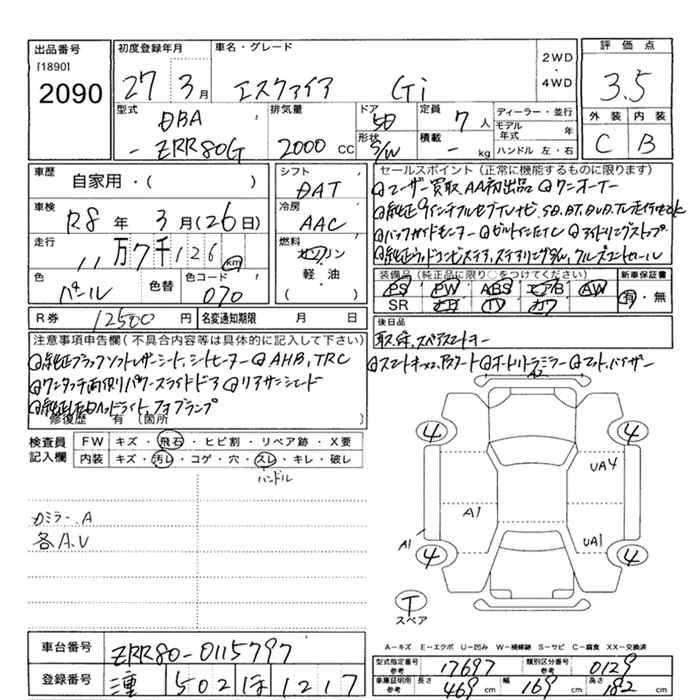 出品番号 初度登録年月 車名・グレード 評価点
[1890]
2090 27 3月 エスクァイア Gi 2WD・4WD 3.5
型式 DBA - ZRR80G 排気量 2000 CC ドア 5D 形状 S/W 定員 7人 積載 - kg ディーラー・並行 モデル年式 年 ハンドル 左・右 外装 内装
C B
車歴 自家用・( ) シフト DAT
車検 R8年 3月(26日) 冷房 AAC
走行 11万7千126km 燃料 ガソリン 軽・油 ( )
色 パール 色替 色コード 070
R券 12500円 名変通知期限 月 日
セールスポイント(正常に機能するものに限ります)
ユーザー買取、AA初出品 ワンオーナー
純正9インチフルセグTVナビ、SD、BT、DVD、TV走行セット
バックガイドモニター ビルトインETC アイドリングストップ
純正ウッドコンビステア、ステアリングSW、クルーズコントロール
装備品(純正品に限り○をつけてください) 新車保証書
PS PW ABS エアB AW 有・無
SR ナビ TV カワ
後日品
取、保、スペアスマートキー
スマートキーx2、Pスタート オートリトラミラー マット、バイザー
注意事項申告欄(不具合内容等は具体的に記入して下さい)
純正ブラックソフトレザーシート、シートヒーター AHB、TRC
ワンタッチ両側パワースライドドア リアサンシェード
純正LEDヘッドライト、フォグランプ
修復歴 有(箇所 )
検査員記入欄 FW キズ・飛石・ヒビ割・リペア跡・X要
内装 キズ・汚レ・コゲ・穴・スレ・キレ・破レ
ハンドル
カミラー、A
各A.U
A2
4 4
UA4
A1
A1 UA1
4 4
T
スペア
A-キズ E-エクボ U-凹み W-補修跡 S-サビ C-腐食 XX-交換済
車台番号 ZRR80-0115797
登録番号 502 ほ 1217
型式指定番号 参考 17697 類別区分番号 参考 0129
車庫証明用 参考 長さ 469cm 幅 169cm 高さ 182cm